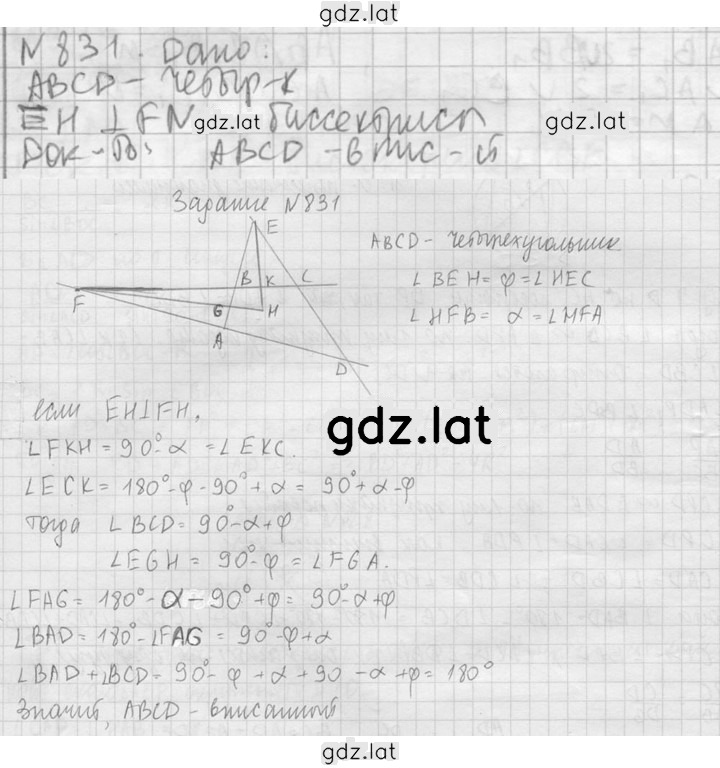 gdz.lat
N 831. Дано:
ABCD - четыр-к
EH ⊥ FN gdz.lat биссектрисы gdz.lat
Док-ть: ABCD - впис-й
Задание N 831
E
ABCD - четырехугольник
B K C
∠ BEH = φ = ∠ HEC
F
G H
∠ HFB = α = ∠ HFA
A
D
если EH⊥FH,
gdz.lat
∠FKH = 90°-α = ∠EKC.
∠ECK = 180°-φ-90°+α = 90°+α-φ
тогда ∠BCD = 90°-α+φ
∠EGH = 90°-φ = ∠FGA.
∠FAG = 180°-α-90°+φ = 90°-α+φ
∠BAD = 180°-∠FAG = 90°-φ+α
∠BAD+∠BCD = 90°-φ+α+90-α+φ = 180°
Значит, ABCD - вписанный
gdz.lat